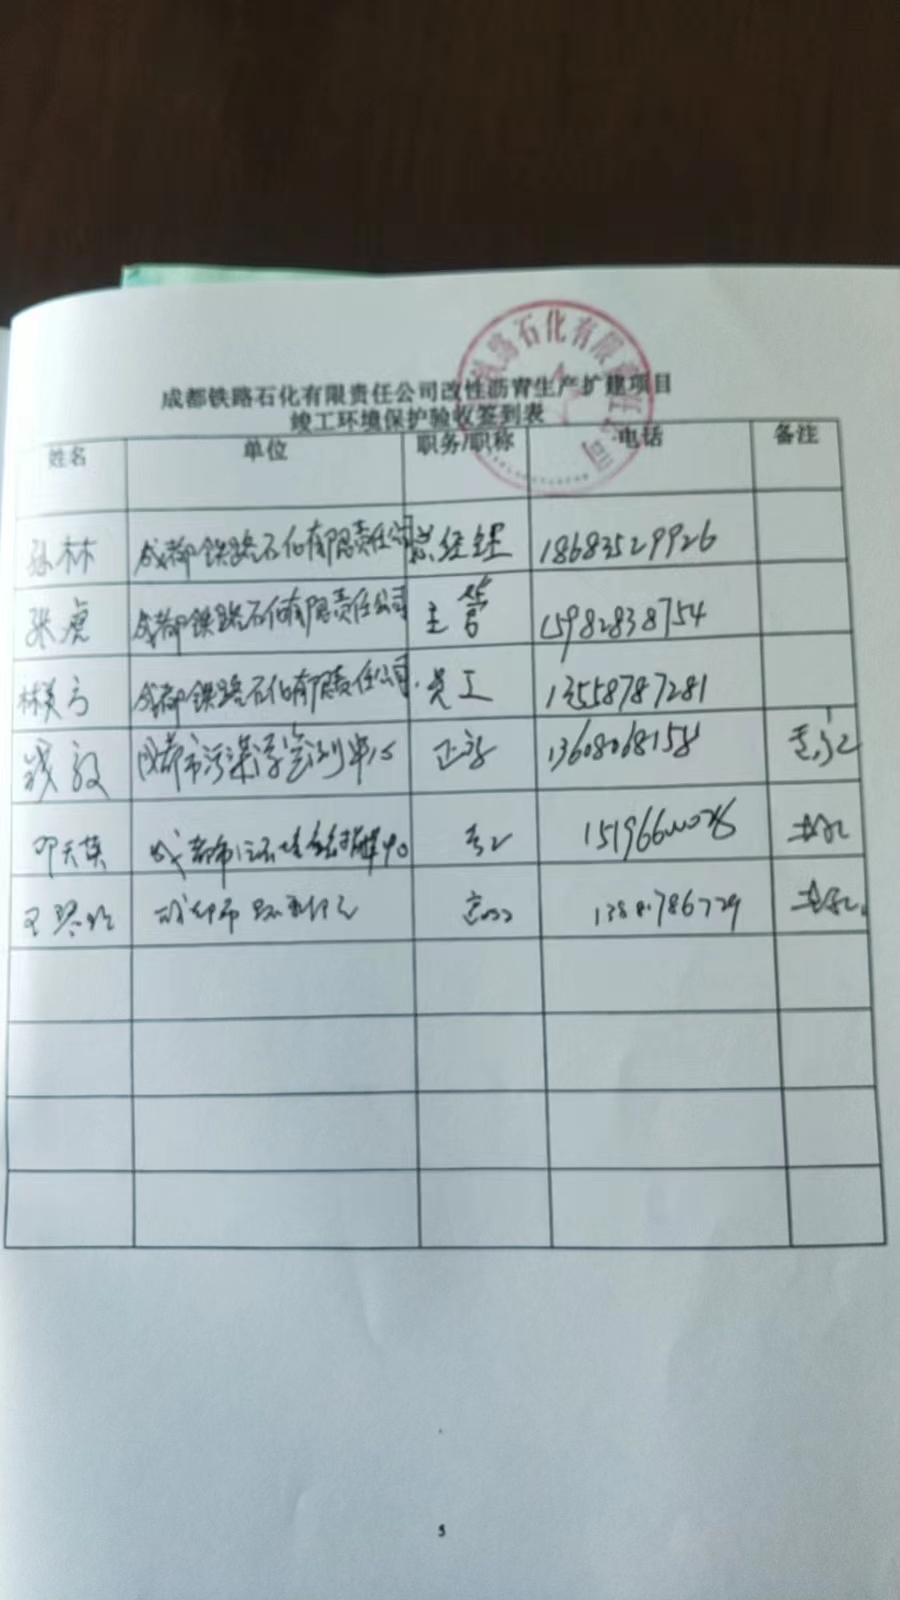 成都铁路石化有限责任公司改性沥青生产扩建项目
竣工环境保护验收签到表
姓名 单位 职务/职称 电话 备注
孙林 成都铁路石化有限责任公司 总经理 18683529926
张虎 成都铁路石化有限责任公司 主管 15982838754
林美方 成都铁路石化有限责任公司 员工 13558787281
钱毅 成都市污染源监测中心 正高 13608068158
邓天英 成都市 高工
王 成都市 高工
铁路石化有限责任公司
5